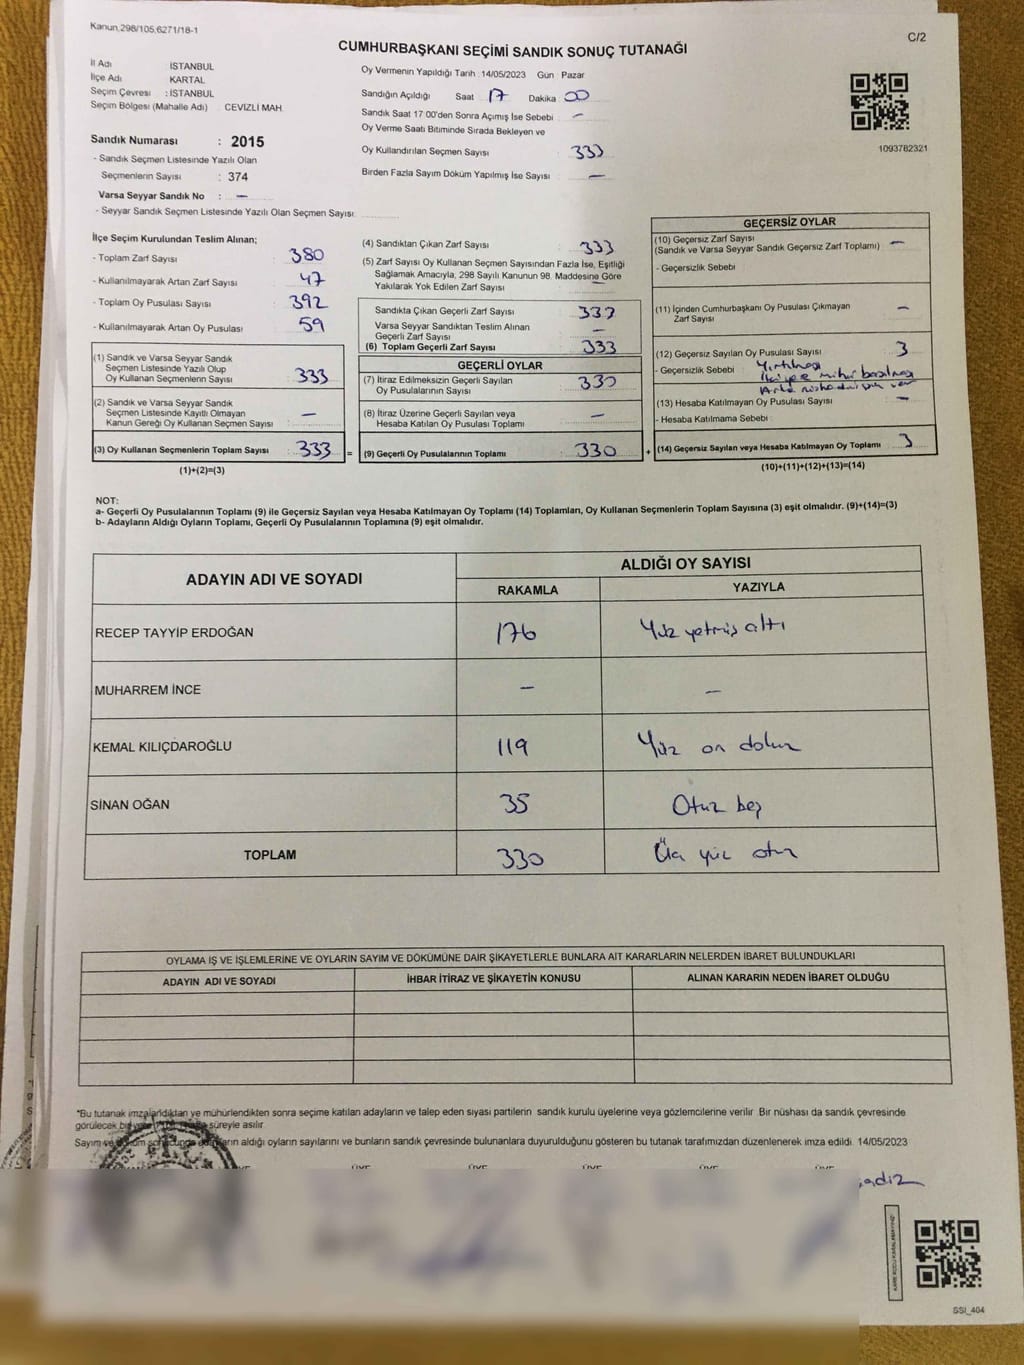 Kanun,298/105,6271/18-1
C/2
CUMHURBAŞKANI SEÇİMİ SANDIK SONUÇ TUTANAĞI
İl Adı İSTANBUL
İlçe Adı KARTAL
Seçim Çevresi : İSTANBUL
Seçim Bölgesi (Mahalle Adı) CEVİZLİ MAH.
Sandık Numarası : 2015
- Sandık Seçmen Listesinde Yazılı Olan
Seçmenlerin Sayısı : 374
Varsa Seyyar Sandık No : –
- Seyyar Sandık Seçmen Listesinde Yazılı Olan Seçmen Sayısı
Oy Vermenin Yapıldığı Tarih 14/05/2023 Gün Pazar
Sandığın Açıldığı Saat 17 Dakika 00
Sandık Saat 17 00'den Sonra Açımış İse Sebebi –
Oy Verme Saati Bitiminde Sırada Bekleyen ve
Oy Kullandırılan Seçmen Sayısı 333
Birden Fazla Sayım Döküm Yapılmış İse Sayısı –
1093782321
İlçe Seçim Kurulundan Teslim Alınan;
- Toplam Zarf Sayısı 380
- Kullanılmayarak Artan Zarf Sayısı 47
- Toplam Oy Pusulası Sayısı 392
- Kullanılmayarak Artan Oy Pusulası 59
(1) Sandık ve Varsa Seyyar Sandık
Seçmen Listesinde Yazılı Olup
Oy Kullanan Seçmenlerin Sayısı 333
(2) Sandık ve Varsa Seyyar Sandık
Seçmen Listesinde Kayıtlı Olmayan
Kanun Gereği Oy Kullanan Seçmen Sayısı –
(3) Oy Kullanan Seçmenlerin Toplam Sayısı 333 =
(1)+(2)=(3)
(4) Sandıktan Çıkan Zarf Sayısı 333
(5) Zarf Sayısı Oy Kullanan Seçmen Sayısından Fazla İse, Eşitliği
Sağlamak Amacıyla, 298 Sayılı Kanunun 98. Maddesine Göre
Yakılarak Yok Edilen Zarf Sayısı –
Sandıkta Çıkan Geçerli Zarf Sayısı 333
Varsa Seyyar Sandıktan Teslim Alınan
Geçerli Zarf Sayısı –
(6) Toplam Geçerli Zarf Sayısı 333
GEÇERLİ OYLAR
(7) İtiraz Edilmeksizin Geçerli Sayılan
Oy Pusulalarının Sayısı 330
(8) İtiraz Üzerine Geçerli Sayılan veya
Hesaba Katılan Oy Pusulası Toplamı –
(9) Geçerli Oy Pusulalarının Toplamı 330 +
GEÇERSİZ OYLAR
(10) Geçersiz Zarf Sayısı –
(Sandık ve Varsa Seyyar Sandık Geçersiz Zarf Toplamı)
- Geçersizlik Sebebi
(11) İçinden Cumhurbaşkanı Oy Pusulası Çıkmayan
Zarf Sayısı –
(12) Geçersiz Sayılan Oy Pusulası Sayısı 3
- Geçersizlik Sebebi Yırtılması
mühür basılması
(13) Hesaba Katılmayan Oy Pusulası Sayısı –
- Hesaba Katılmama Sebebi
(14) Geçersiz Sayılan veya Hesaba Katılmayan Oy Toplamı 3
(10)+(11)+(12)+(13)=(14)
NOT:
a- Geçerli Oy Pusulalarının Toplamı (9) ile Geçersiz Sayılan veya Hesaba Katılmayan Oy Toplamı (14) Toplamları, Oy Kullanan Seçmenlerin Toplam Sayısına (3) eşit olmalıdır. (9)+(14)=(3)
b- Adayların Aldığı Oyların Toplamı, Geçerli Oy Pusulalarının Toplamına (9) eşit olmalıdır.
ADAYIN ADI VE SOYADI
ALDIĞI OY SAYISI
RAKAMLA YAZIYLA
RECEP TAYYİP ERDOĞAN 176 Yüz yetmiş altı
MUHARREM İNCE – –
KEMAL KILIÇDAROĞLU 119 Yüz on dokuz
SİNAN OĞAN 35 Otuz beş
TOPLAM 330 Üç yüz otuz
OYLAMA İŞ VE İŞLEMLERİNE VE OYLARIN SAYIM VE DÖKÜMÜNE DAİR ŞİKAYETLERLE BUNLARA AİT KARARLARIN NELERDEN İBARET BULUNDUKLARI
ADAYIN ADI VE SOYADI İHBAR İTİRAZ VE ŞİKAYETİN KONUSU ALINAN KARARIN NEDEN İBARET OLDUĞU
*Bu tutanak imzalandıktan ve mühürlendikten sonra seçime katılan adayların ve talep eden siyasi partilerin sandık kurulu üyelerine veya gözlemcilerine verilir Bir nüshası da sandık çevresinde
görülecek bir süreyle asılır
Sayım ve aldığı oyların sayılarını ve bunların sandık çevresinde bulunanlara duyurulduğunu gösteren bu tutanak tarafımızdan düzenlenerek imza edildi 14/05/2023
SSI_404